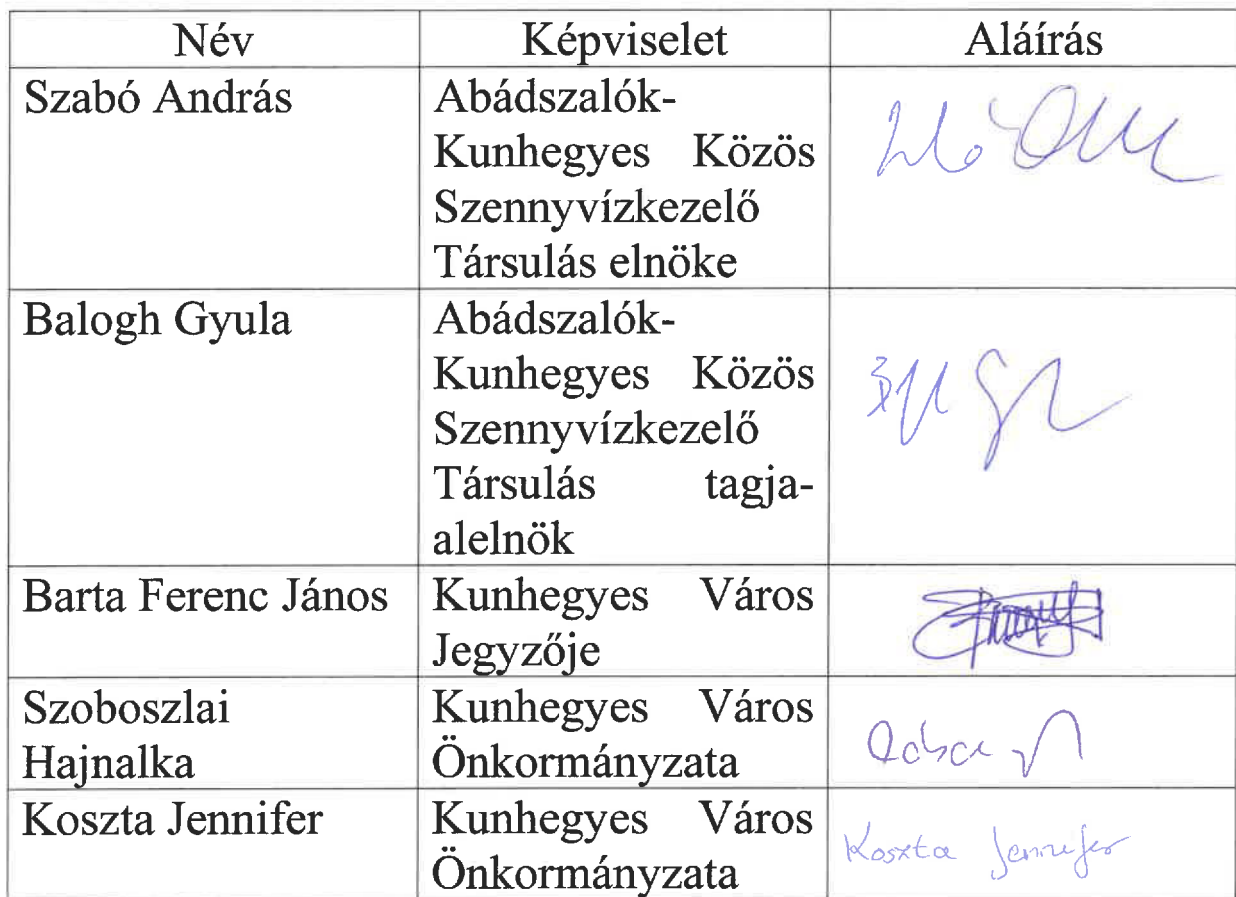 Név Képviselet Aláírás
Szabó András Abádszalók-
Kunhegyes Közös
Szennyvízkezelő
Társulás elnöke
Balogh Gyula Abádszalók-
Kunhegyes Közös
Szennyvízkezelő
Társulás tagja-
alelnök
Barta Ferenc János Kunhegyes Város
Jegyzője
Szoboszlai Kunhegyes Város
Hajnalka Önkormányzata
Koszta Jennifer Kunhegyes Város
Önkormányzata
Koszta Jennifer